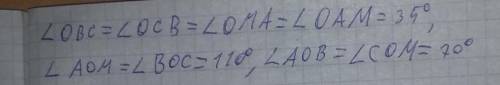 ∠OBC=∠OCB=∠OMA=∠OAM=35°,
∠AOM=∠BOC=110°, ∠AOB=∠COM=70°